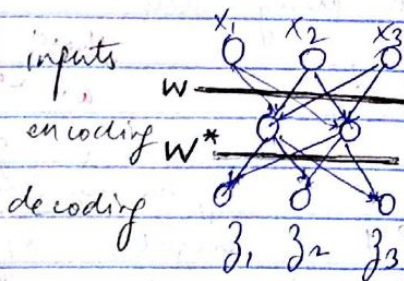 x1 x2 x3
inputs
W
encoding W*
decoding
z1 z2 z3